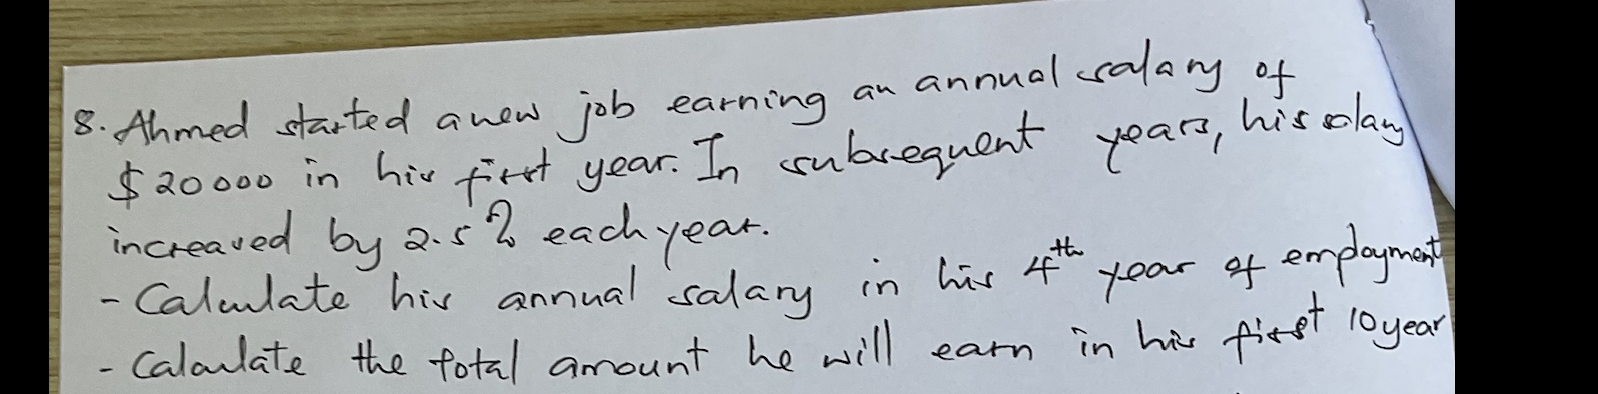 8. Ahmed started a new job earning an annual salary of
$20000 in his first year. In subsequent years, his salary
increased by 2.5% each year.
- Calculate his annual salary in his 4th year of employment
- Calculate the total amount he will earn in his first 10 year